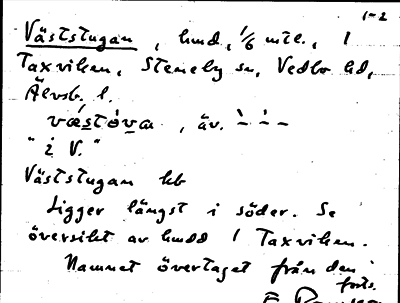 1-2
Väststugan, hmd., 1/6 mtl., 1
Taxviken, Steneby sn, Vedbo hd,
Älvsb. l.
væstóva, äv. `- ´- -
"i V."
Väststugan hb
Ligger längst i söder. Se
översikt av hmdd 1 Taxviken.
Namnet övertaget från den
forts.